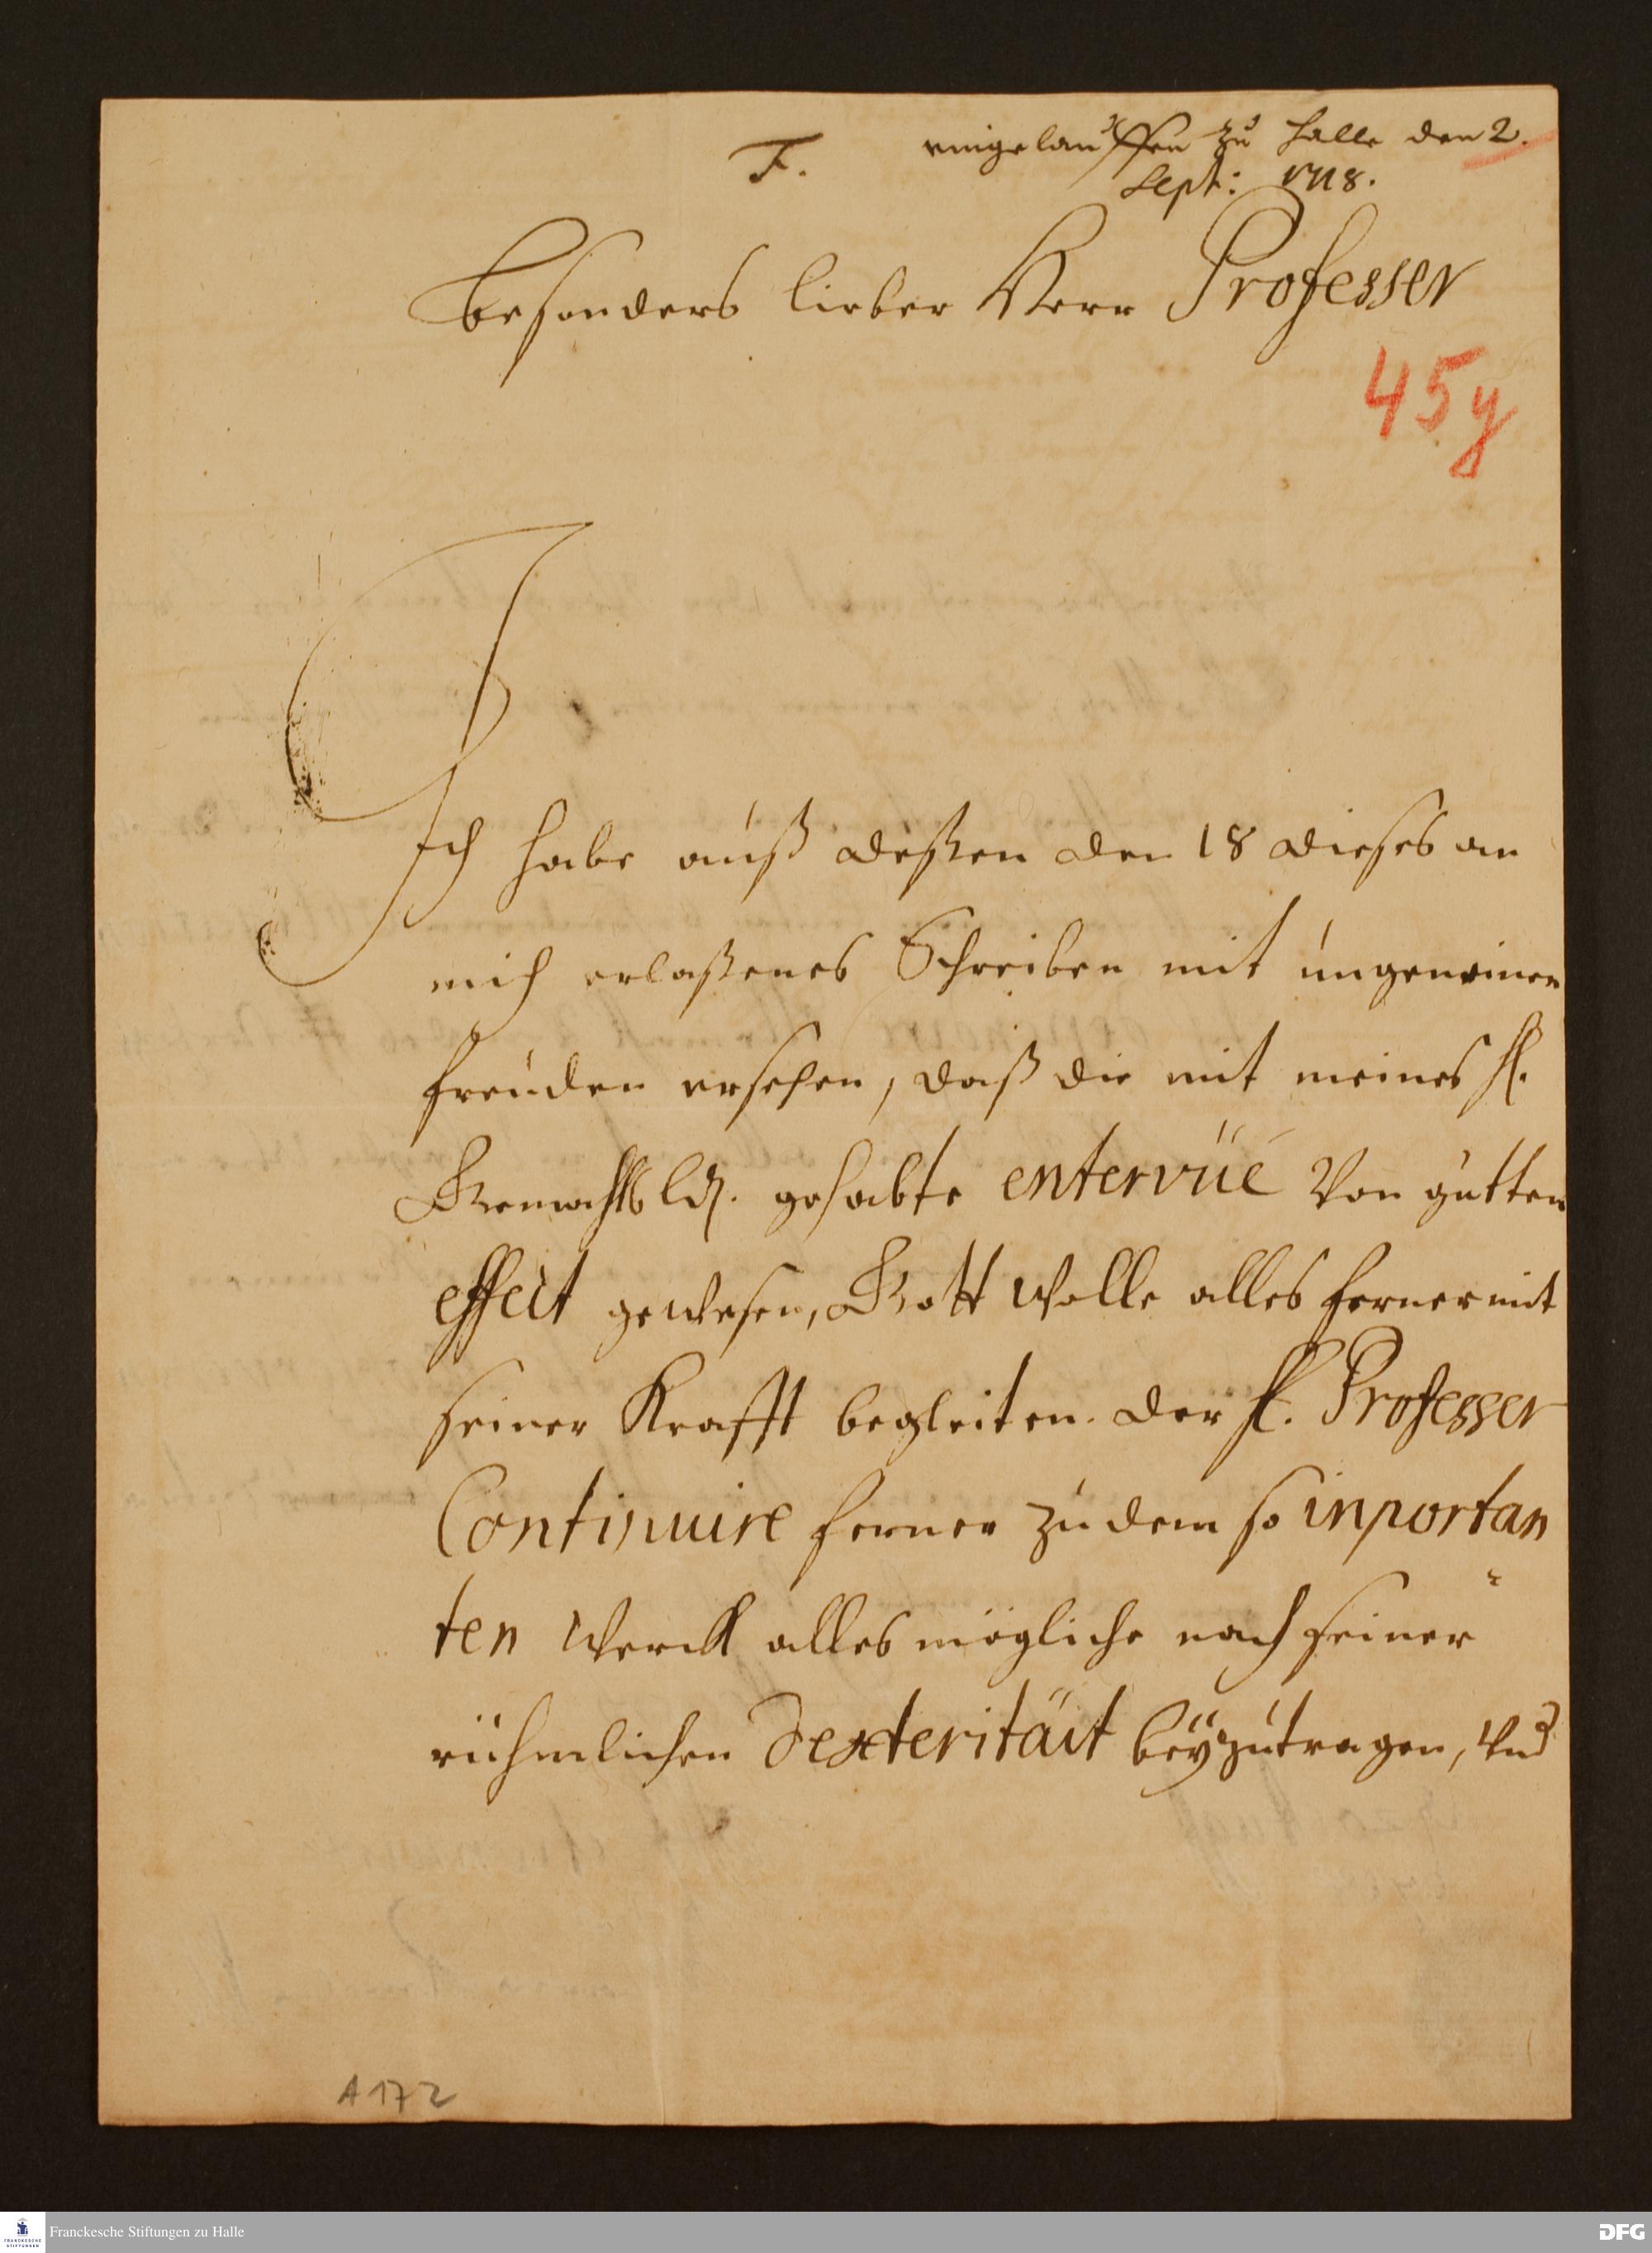 F.
eingelauffen zu Halle den 2.
Sept: 1718.
Besonders lieber Herr Professer
45y
Ich habe auß deßen den 18 dieses an
mich erlaßenes Schreiben mit ungemeinen
freuden ersehen, daß die mit meines H.
gehabte entervüé Von gutten
effect gewesen, Gott wolle alles ferner mit
seiner Krafft begleiten. der H. Professer
Continuire ferner zu dem so inportan
ten Werck alles mögliche nach seiner
rühmlichen Dexteritäit beÿzutragen, Und
A 172
Franckesche Stiftungen zu Halle
FRANCKESCHE
STIFTUNGEN
DFG